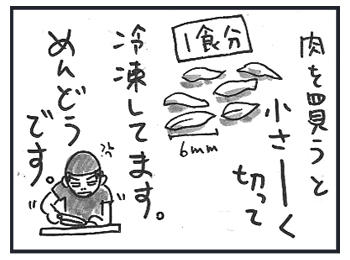 肉を買うと
小さーく
切って
1食分
6mm
冷凍してます。
めんどう
です。